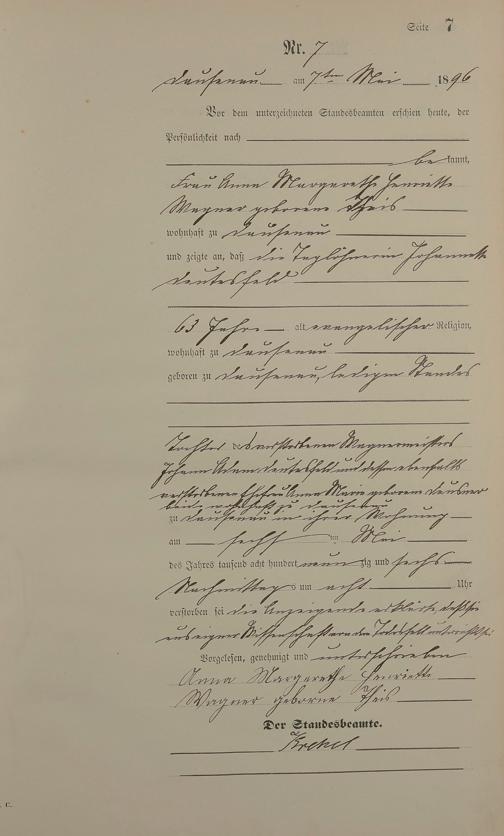 Seite 7
Nr. 7
Dausenau am 7ten Mai 1896
Vor dem unterzeichneten Standesbeamten erschien heute, der
Persönlichkeit nach
be kannt,
Frau Anna Margarethe Henriette
Wagner geborene Theis
wohnhaft zu Dausenau
und zeigte an, daß die Taglöhnerin Johannette
Deutesfeld
63 Jahre alt, evangelischer Religion,
wohnhaft zu Dausenau
geboren zu Dausenau, ledigen Standes
Tochter des verstorbenen Wagnermeisters
Johann Adam Deutesfeld und dessen ebenfalls
verstorbenen Ehefrau Anna Maria geborene
beide wohnhaft zu Dausenau
zu Dausenau in ihrer Wohnung
am sechsten Mai
des Jahres tausend acht hundert neun zig und sechs
Nachmittags um acht Uhr
verstorben sei die Anzeigende erklärte, daß sie
aus eigner Wissenschaft von dem Todesfall unterrichtet sei
Vorgelesen, genehmigt und unterschrieben
Anna Margarethe Henriette
Wagner geborne Theis
Der Standesbeamte.
Krekel
C.